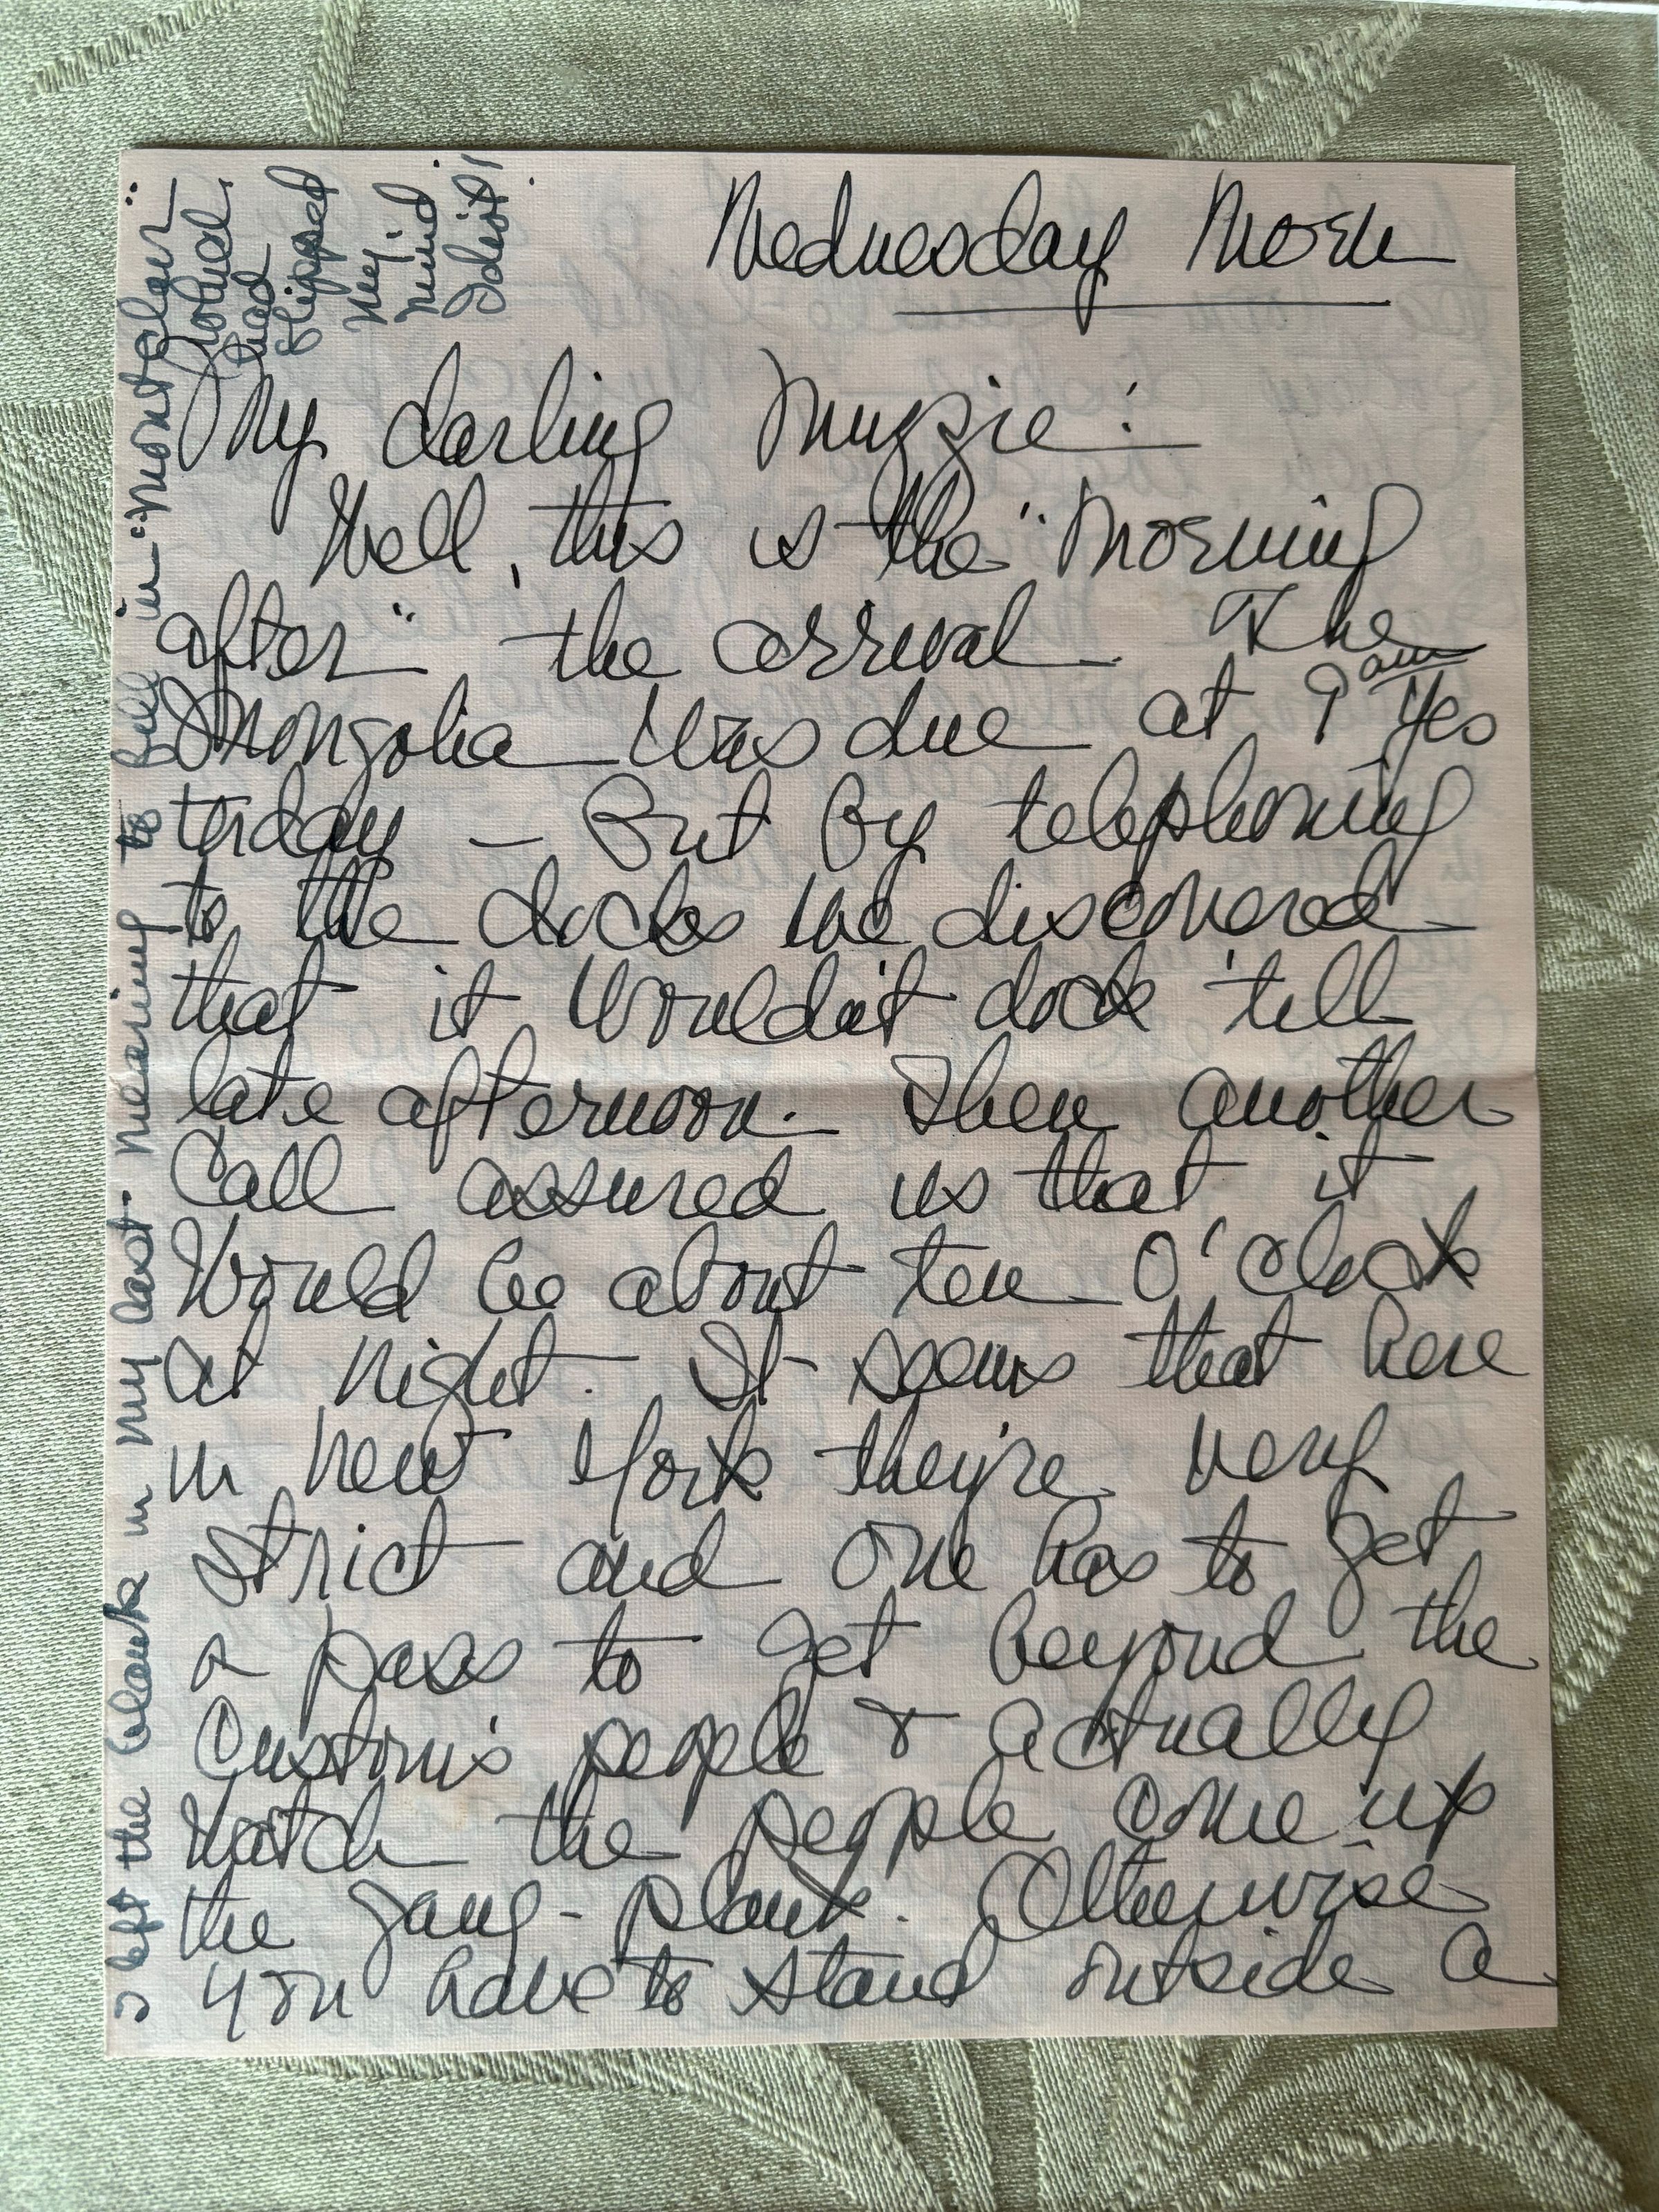 Wednesday Morn
My darling Muzzie:
Well, this is the "morning
after" the arrival. The
Mongolia was due at 9 am yes
terday – But by telephoning
to the docks we discovered
that it wouldn't dock 'till
late afternoon. Then another
call assured us that it
would be about ten O'clock
at night. It seems that here
in New York they're very
strict and one has to get
a pass to get beyond the
Custom's people & actually
watch the people come up
the gang-plank. Otherwise
you have to stand outside a
I left the blank in my last meaning to fill in "Montclair"
had
slipped
my
mind
Idiot!